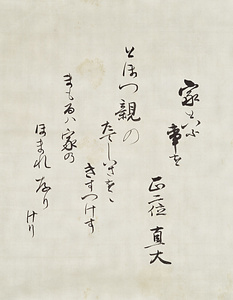 家といふ事を
正二位 直大
とほつ親の
たてしいさをゝ
きすつけす
まもるハ家の
ほまれなり
けり